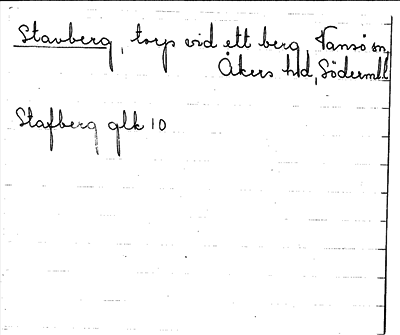 Stavberg, torp vid ett berg, Vansö sn,
Åkers hd, Söderml.
Stafberg glk 10